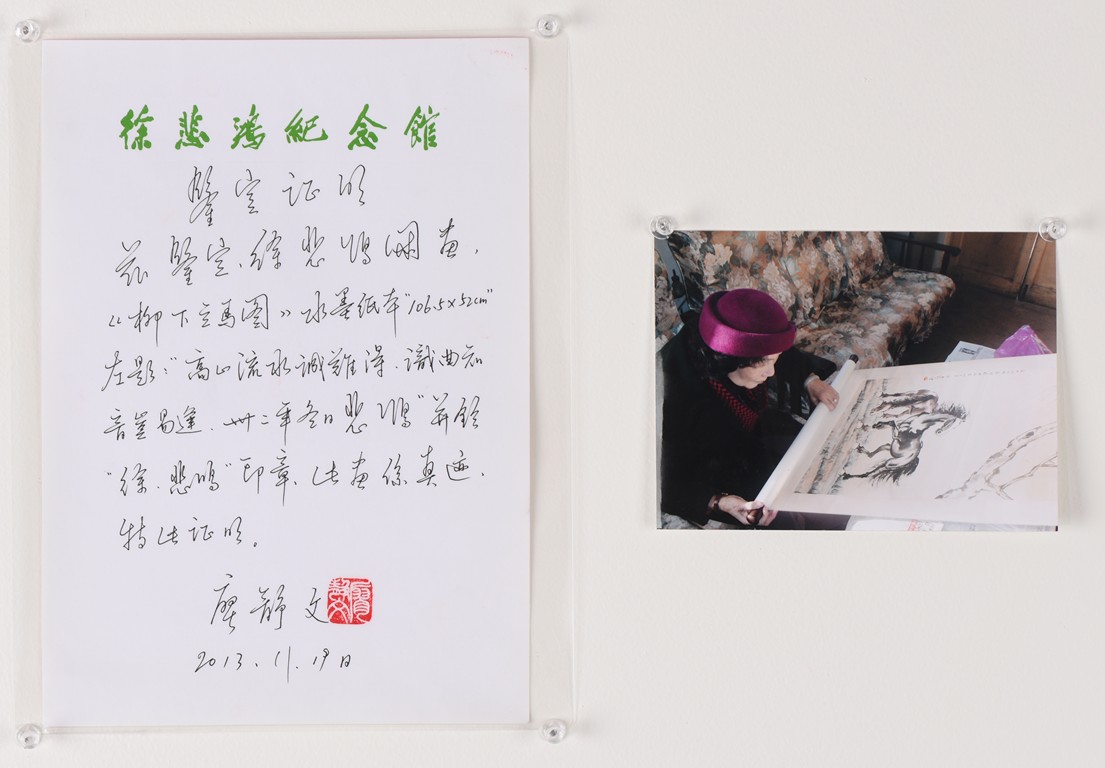 徐悲鸿紀念館
鑒定证明
兹鑒定,徐悲鴻國画,
《柳下立马图》水墨纸本"106.5×52cm"
左题:"高山流水诚難得,識曲知
音豈易逢.卅二年冬日悲鴻"并鈐
"徐.悲鸿"印章,此画係真迹,
特此证明。
廖静文
2013.11.19日